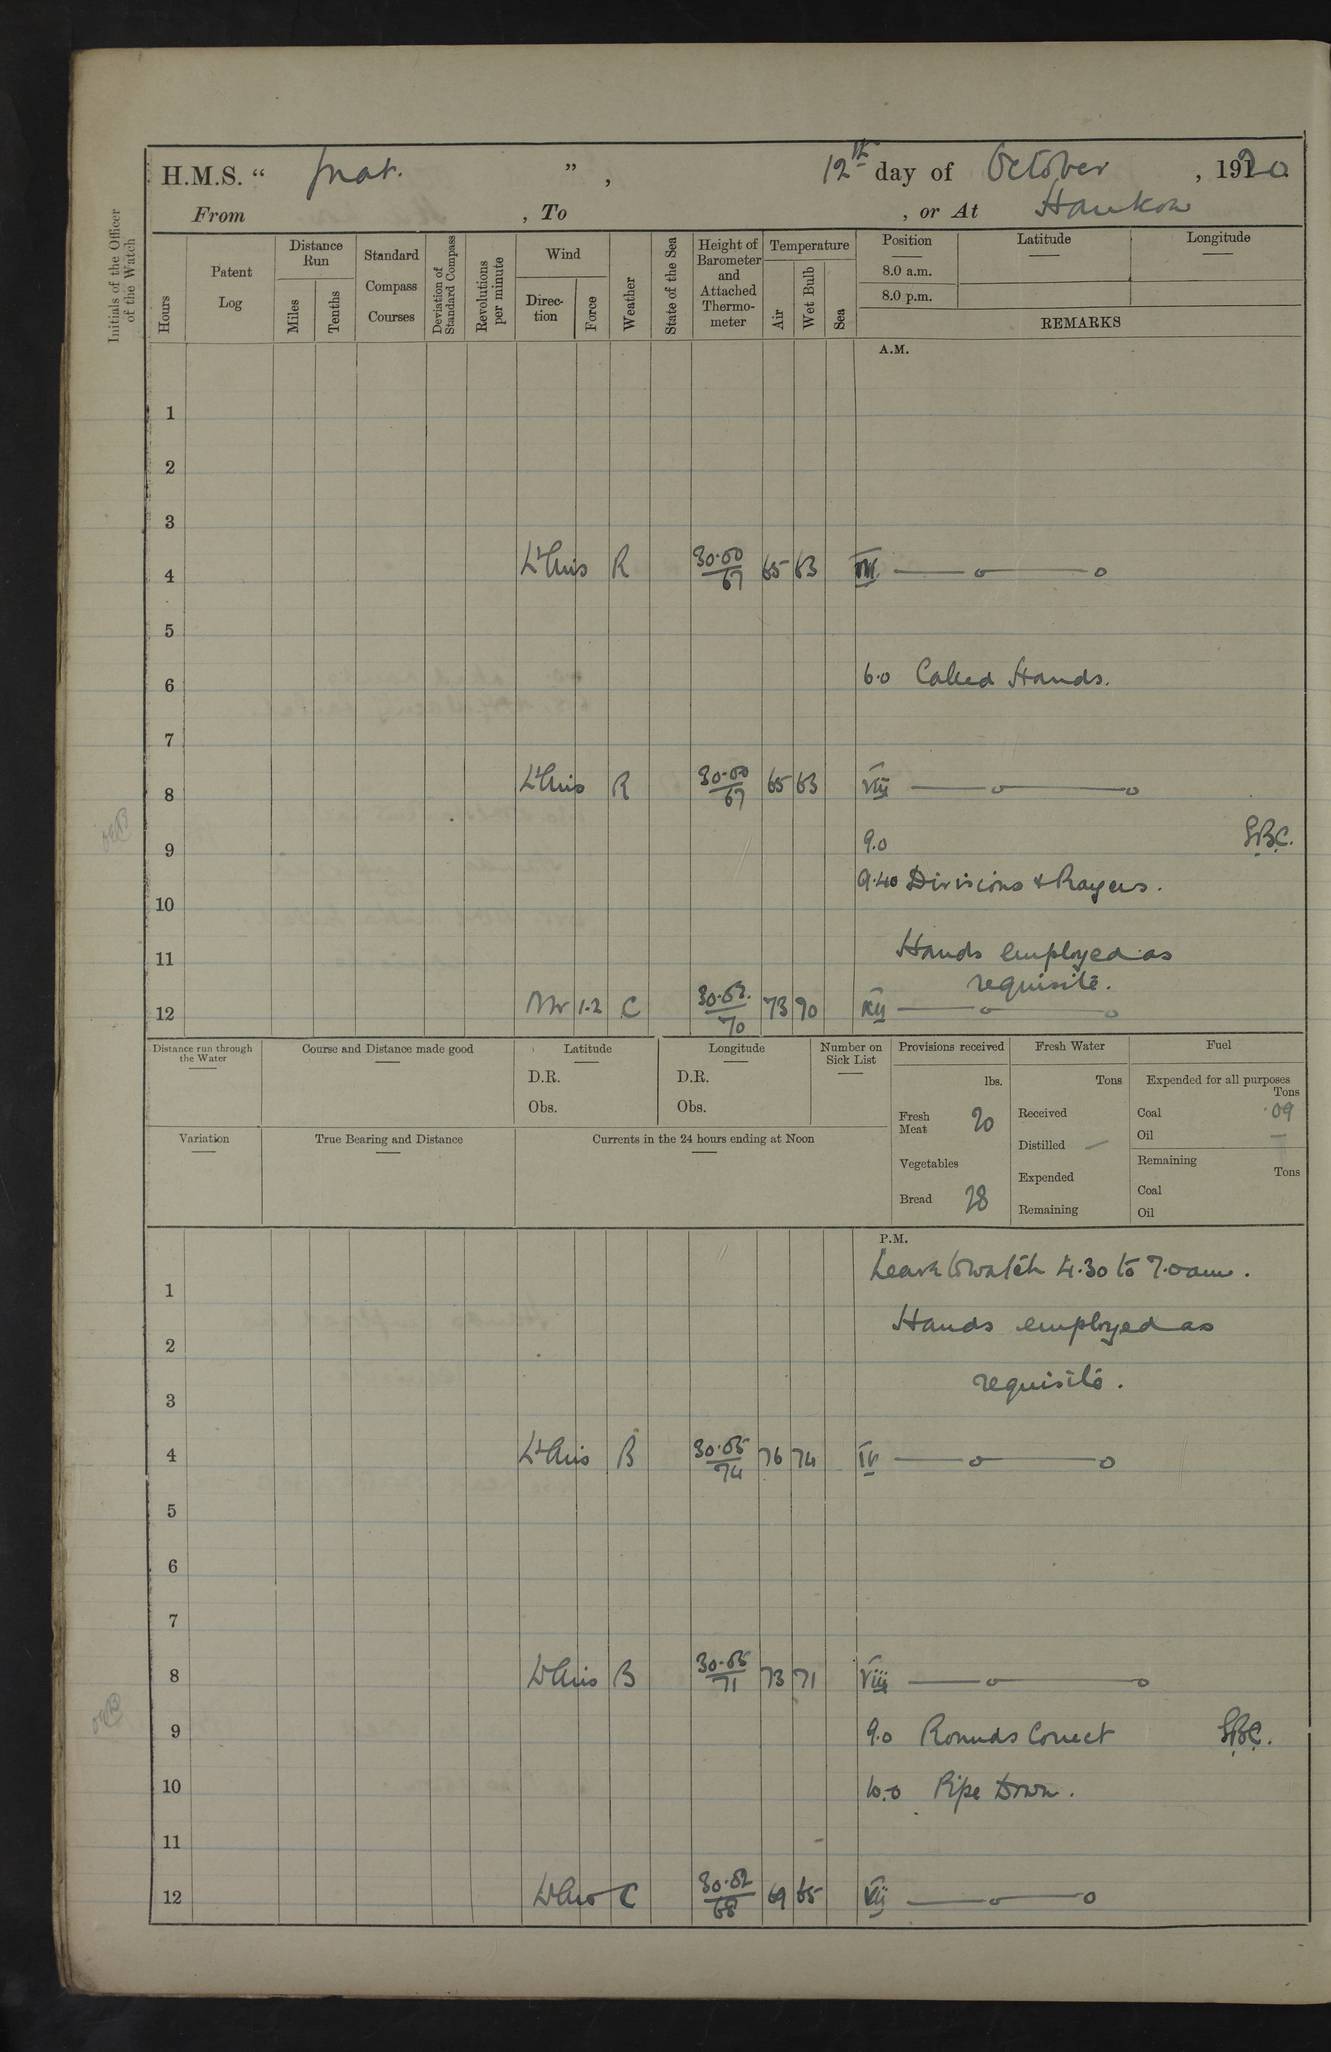 H.M.S. “ Gnat. ” , 12th day of October , 1920
From , To , or At Hankow
Initials of the Officer of the Watch
Hours
Patent Log
Distance Run
Miles
Tenths
Standard Compass Courses
Deviation of Standard Compass
Revolutions per minute
Wind
Direc-tion
Force
Weather
State of the Sea
Height of Barometer and Attached Thermo-meter
Temperature
Air
Wet Bulb
Sea
Position
Latitude
Longitude
8.0 a.m.
8.0 p.m.
REMARKS
A.M.
1
2
3
4 Lt Airs R 30.00/67 65 63 IV
5
6 6.0 Called Hands.
7
8 Lt Airs R 30.00/67 65 63 VIII
9 9.0 G.B.C.
9.40 Divisions & Prayers.
10
11 Hands employed as
requisite.
12 1-2 C 70 73 70 XII
Distance run through the Water
Course and Distance made good
Latitude
D.R.
Obs.
Longitude
D.R.
Obs.
Number on Sick List
Provisions received
lbs.
Fresh Meat 20
Vegetables
Bread 28
Fresh Water
Tons
Received
Distilled –
Expended
Remaining
Fuel
Expended for all purposes
Tons
Coal .09
Oil –
Remaining
Tons
Coal
Oil
Variation
True Bearing and Distance
Currents in the 24 hours ending at Noon
P.M.
Leave to watch 4.30 to 7.0 am.
1
Hands employed as
2
requisite.
3
4 Lt Airs B 30.05/74 76 74 IV
5
6
7
8 Lt Airs B 30.05/71 73 71 VIII
9 9.0 Rounds Correct G.B.C.
10 10.0 Pipe Down.
11
12 Lt Airs C 30.02/68 69 65 XII